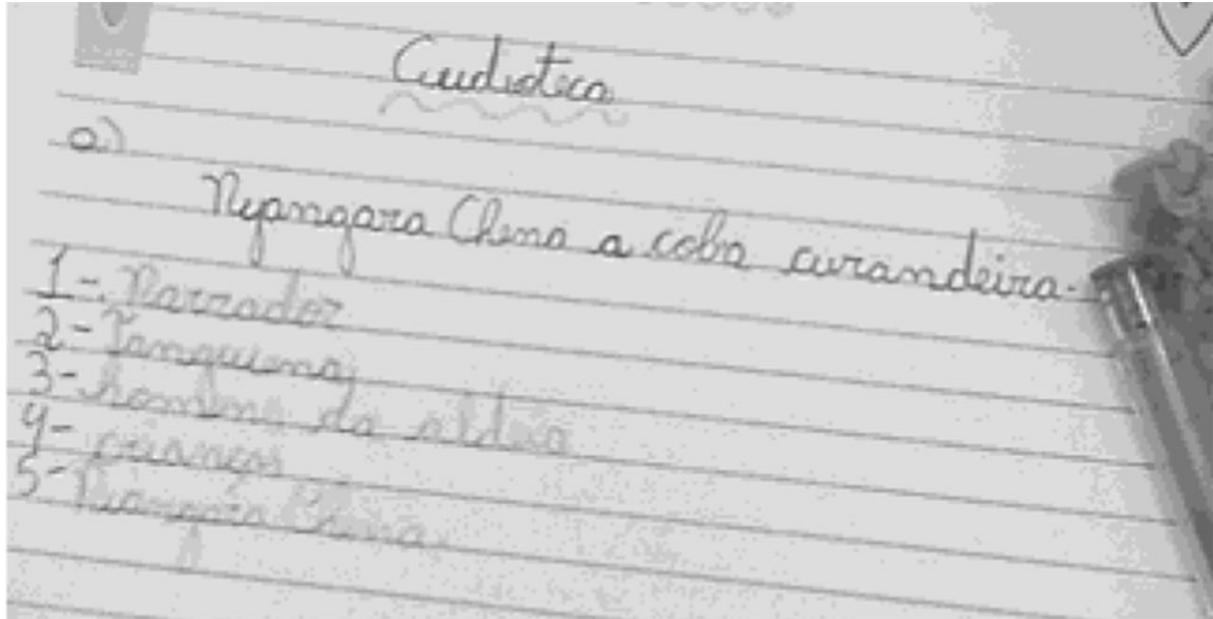 Audioteca
a)
Nyangara Chena a coba curandeira.
1- Narrador
2- Tanguiena
3- homens da aldeia
4- crianças
5- Niangara Chena.